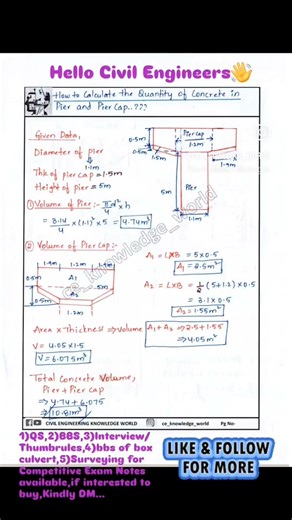 Hello Civil Engineers👋
How to Calculate the Quantity of Concrete in
Pier and Pier Cap..???
Given Data,
Diameter of pier
↳ 1.1m
Thk of pier cap = 1.5m
Height of pier = 5m
0.5m
0.5m
0.5m
Pier cap
1.2m
1.9m
5m
Pier
1.1m
① Volume of Pier:- πd²/4 × h
= 3.14/4 × (1.1)² × 5 = 4.74m³
② Volume of Pier Cap:-
1.9m 1.2m 1.9m
0.5m
A1
A2
0.5m
1.2m
A1 = L×B = 5×0.5
A1 = 2.5m²
A2 = L×B = 1/2 (5+1.2)×0.5
= 3.1×0.5
A2 = 1.55m²
Area × Thickness => Volume
A1+A2 => 2.5+1.55
=> 4.05m²
V = 4.05×1.5
V = 6.075m³
Total Concrete Volume,
Pier + Pier Cap
=> 4.74 + 6.075
=> 10.81m³
ce_knowledge_world
CIVIL ENGINEERING KNOWLEDGE WORLD ce_knowledge_world Pg No-
1)QS,2)BBS,3)Interview/
Thumbrules,4)bbs of box
culvert,5)Surveying for
Competitive Exam Notes
available,if interested to
buy,Kindly DM...
LIKE & FOLLOW
FOR MORE